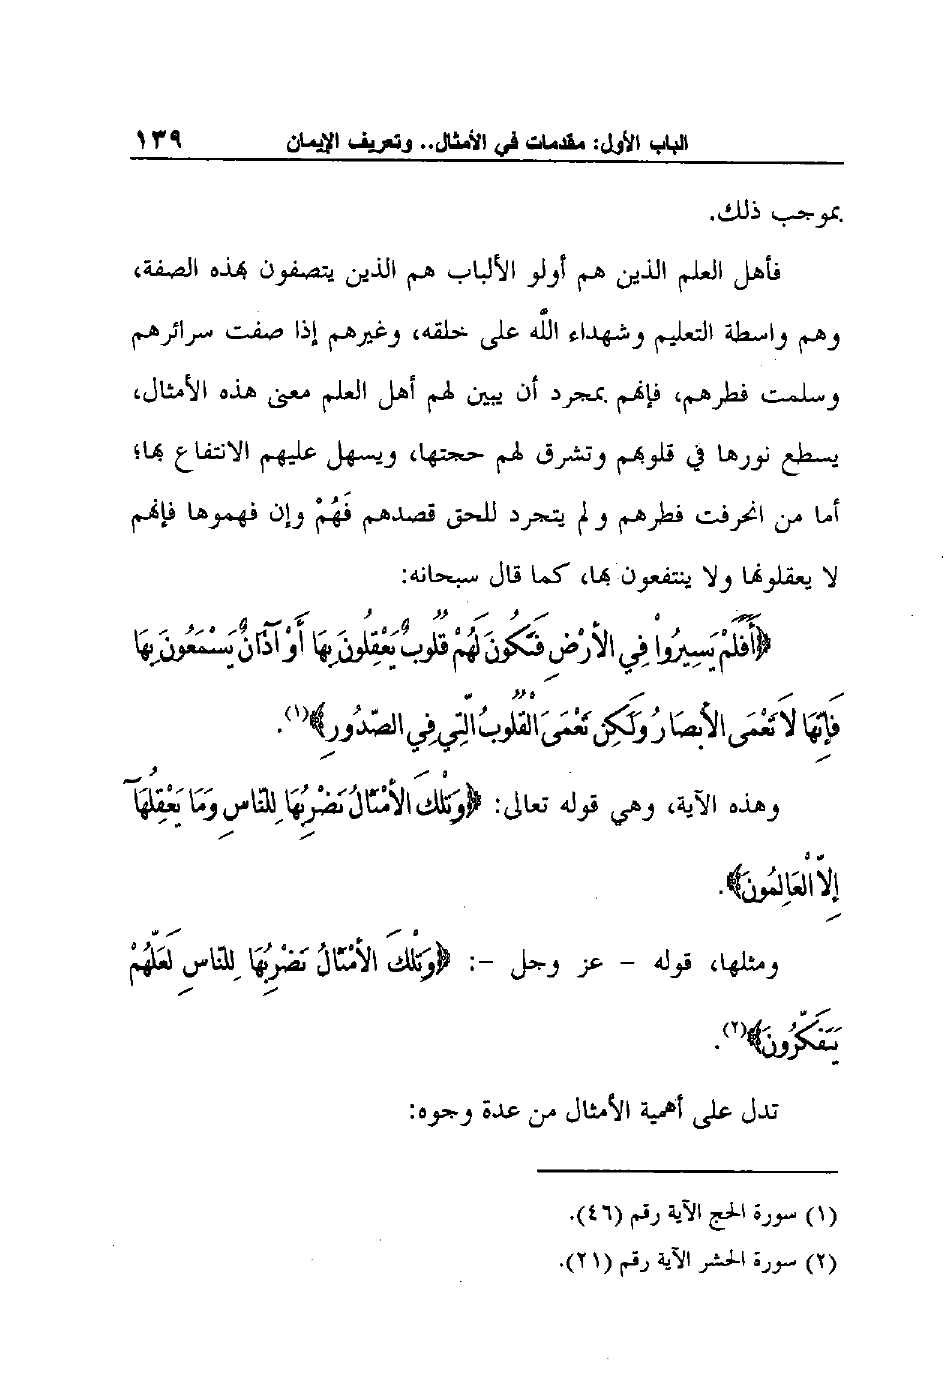 الباب الأول: مقدمات في الأمثال.. وتعريف الإيمان ١٣٩
بموجب ذلك.
فأهل العلم الذين هم أولو الألباب هم الذين يتصفون بهذه الصفة،
وهم واسطة التعليم وشهداء الله على خلقه، وغيرهم إذا صفت سرائرهم
وسلمت فطرهم، فإنهم بمجرد أن يبين لهم أهل العلم معنى هذه الأمثال،
يسطع نورها في قلوبهم وتشرق لهم حجتها، ويسهل عليهم الانتفاع بها؛
أما من انحرفت فطرهم ولم يتجرد للحق قصدهم فَهُمْ وإن فهموها فإنهم
لا يعقلونها ولا ينتفعون بها، كما قال سبحانه:
﴿أَفَلَمْ يَسِيرُوا فِي الأَرْضِ فَتَكُونَ لَهُمْ قُلُوبٌ يَعْقِلُونَ بِهَا أَوْ آذَانٌ يَسْمَعُونَ بِهَا
فَإِنَّهَا لَا تَعْمَى الأَبْصَارُ وَلَكِن تَعْمَى الْقُلُوبُ الَّتِي فِي الصُّدُورِ﴾(١).
وهذه الآية، وهي قوله تعالى: ﴿وَتِلْكَ الأَمْثَالُ نَضْرِبُهَا لِلنَّاسِ وَمَا يَعْقِلُهَا
إِلَّا الْعَالِمُونَ﴾.
ومثلها، قوله - عز وجل -: ﴿وَتِلْكَ الأَمْثَالُ نَضْرِبُهَا لِلنَّاسِ لَعَلَّهُمْ
يَتَفَكَّرُونَ﴾(٢).
تدل على أهمية الأمثال من عدة وجوه:
(١) سورة الحج الآية رقم (٤٦).
(٢) سورة الحشر الآية رقم (٢١).